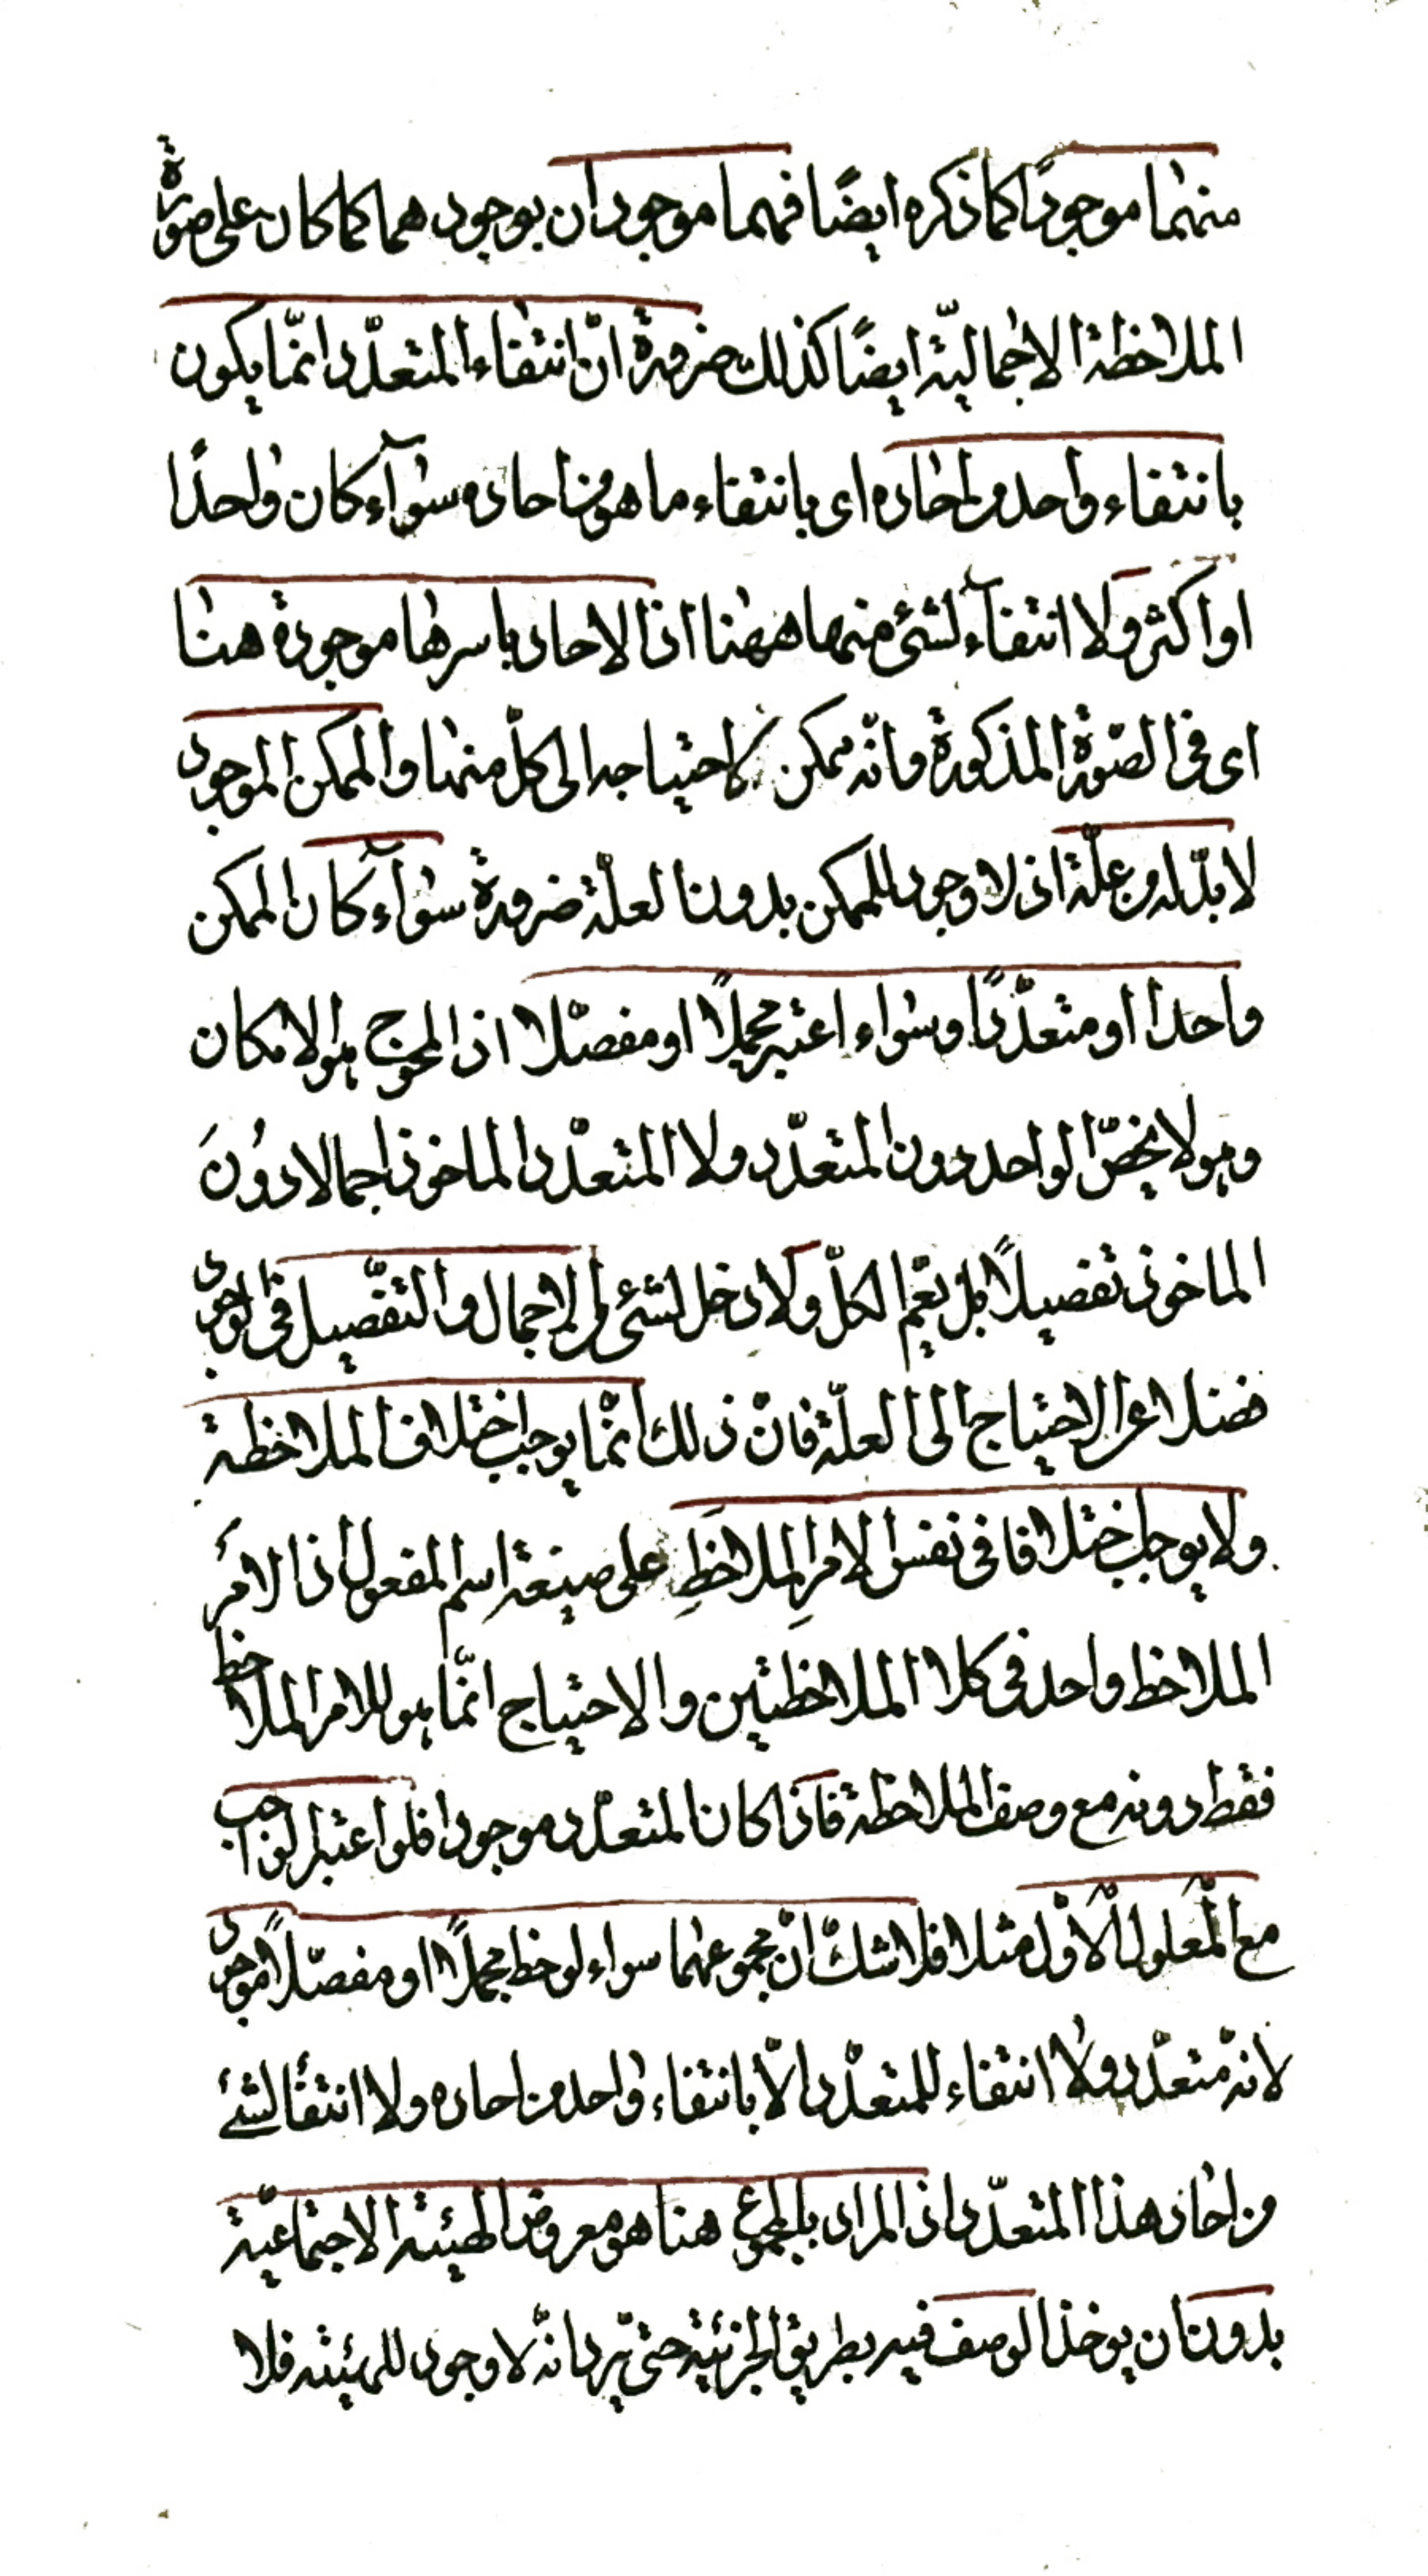 منهما موجودًا كما ذكره ايضًا فهما موجودان بوجودهما كما كان على صورة
الملاحظة الاجماليّة ايضًا كذلك ضرورة انّ انتفاء المتعدّد انّما يكون
بانتفاء واحد من احاده اى بانتفاء ما هو من احاده سوآء كان واحدًا
او اكثر ولا انتفآء لشئ منهما ههنا اذ الاحاد باسرها موجودة هنا
اى فى الصّورة المذكورة وانّه ممكن لاحتياجه الى كلّ منهما والممكن الموجود
لا بدّ له من علّة اذ لا وجود للممكن بدون العلّة ضرورة سوآء كان الممكن
واحدا او متعدّدًا وسواء اعتبر مجملًا او مفصّلا اذ المحوج هو الامكان
وهو لا يخصّ الواحد دون المتعدّد ولا المتعدّد الماخوذ اجمالا دون
الماخوذ تفصيلًا بل يعمّ الكلّ ولا دخل لشئ من الاجمال والتفصيل فى الوجود
فضلا عن الاحتياج الى العلّة فانّ ذلك انّما يوجب اختلاف الملاحظة
ولا يوجب اختلافا فى نفس الامر الملاحَظِ على صيغة اسم المفعول اذ الامرُ
الملاحظ واحد فى كلا الملاحظتين والاحتياج انّما هو للامر الملاحظ
فقط دونه مع وصف الملاحظة فاذا كان المتعدّد موجودا فلو اعتبر الواجب
مع الْمَعلول الْاَوّل مثلا فلا شكّ انّ مجموعهما سواء لوحظ مجملًا او مفصّلًا موجود
لانّه متعدّد ولا انتفاء للمتعدّد الّا بانتفاء واحد من احاده ولا انتفأ لشئ
من احاد هذا المتعدّد اذ المراد بالمجموع هنا هو معروض الهيئة الاجتماعيّة
بدون ان يوخذ الوصف فيه بطريق الجزئية حتى يرد انّه لا وجود للهيئة فلا